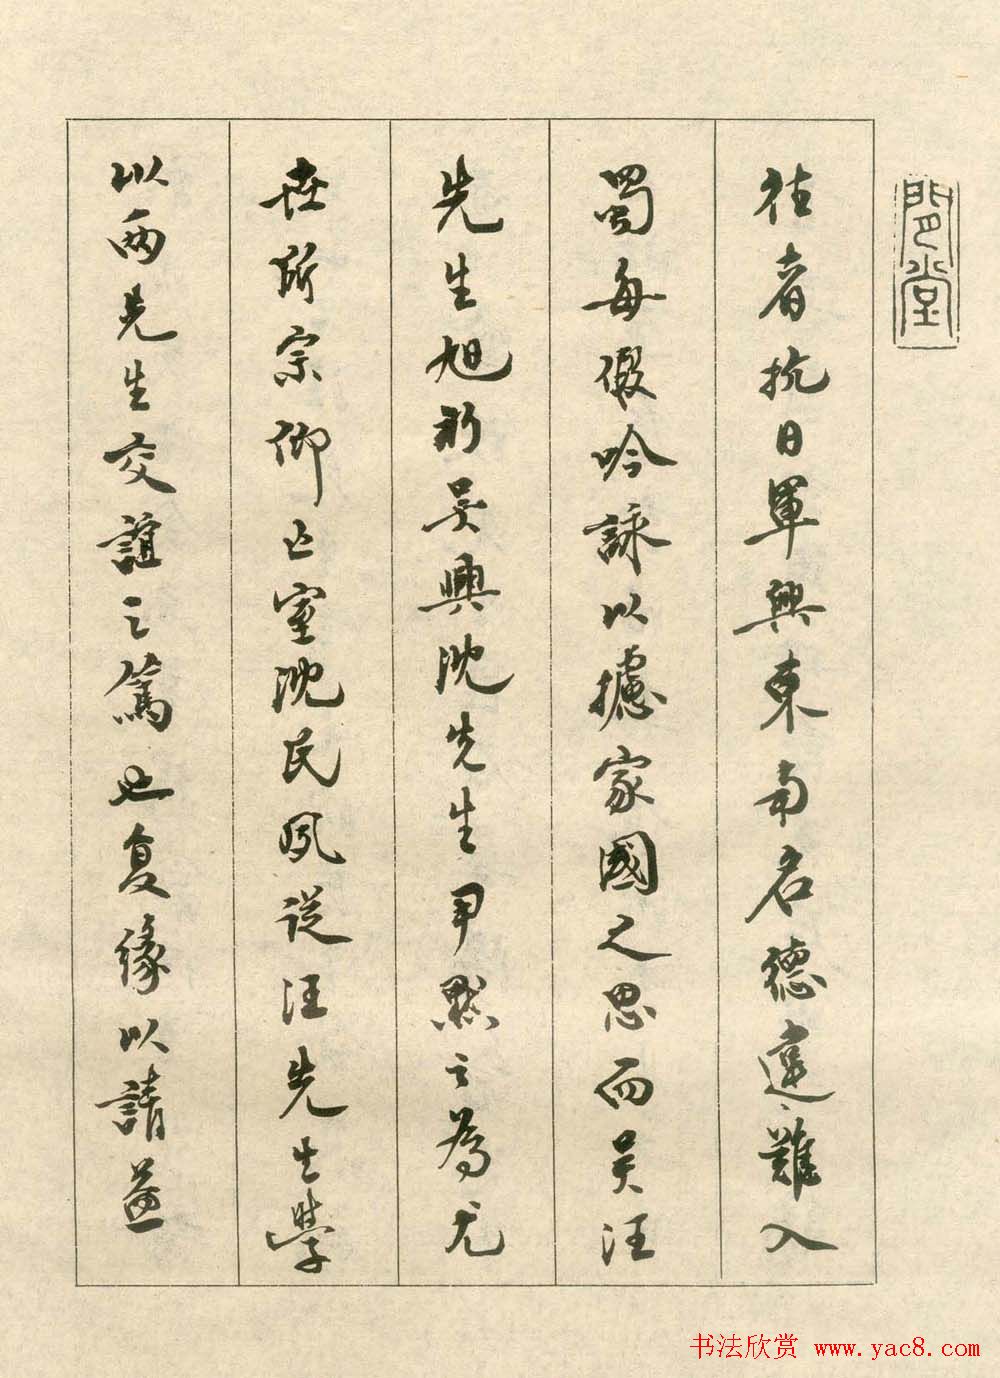 閒堂
往者抗日軍興東南名德違難入
蜀每假吟詠以攄家國之思而吳汪
先生旭初吳興沈先生尹默之為尤
世所宗仰亡室沈氏夙從汪先生學
以兩先生交誼之篤也复緣以請益
书法欣赏 www.yac8.com